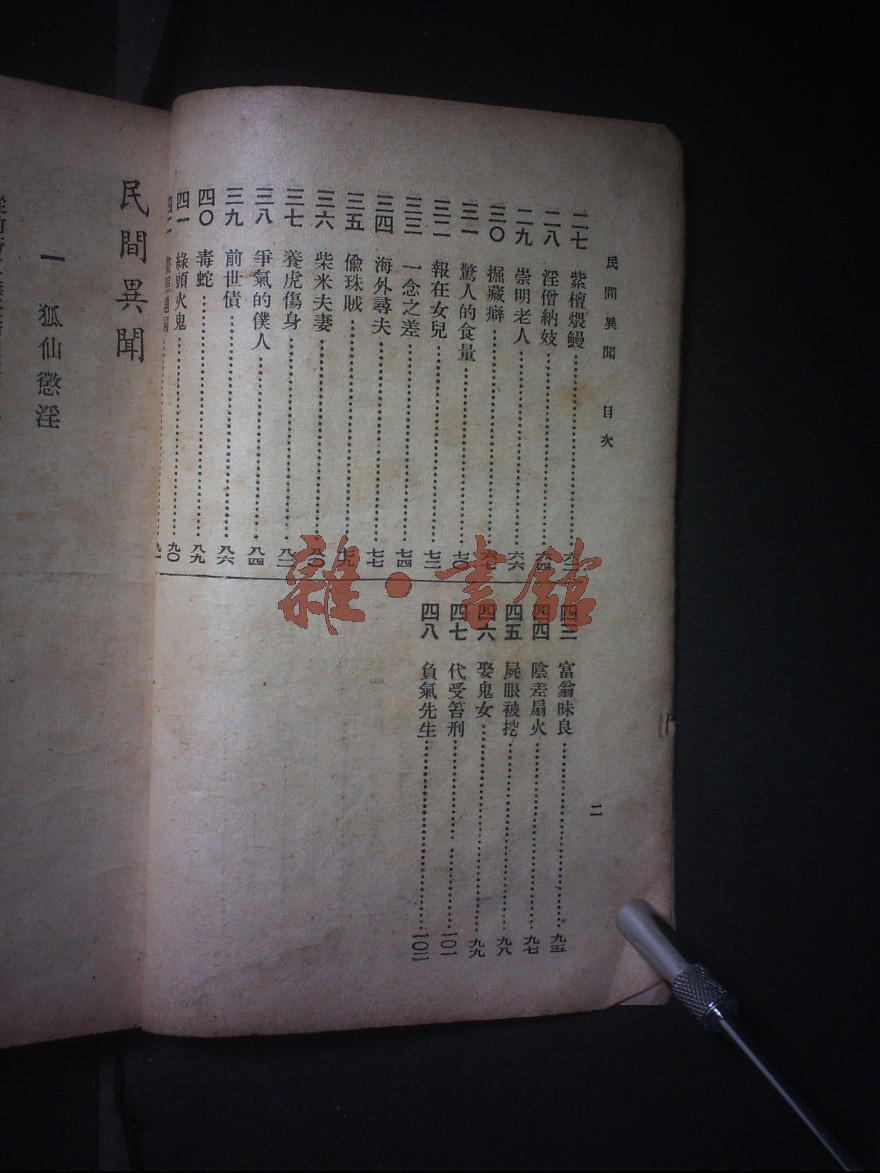 民間異聞 目次
二七 紫檀煨鰻
二八 淫僧納妓 六四
二九 崇明老人 六六
三〇 掘藏癖 六七
三一 驚人的食量 七〇
三二 報在女兒 七二
三三 一念之差 七四
三四 海外尋夫 七七
三五 偸珠賊 七九
三六 柴米夫妻 八〇
三七 養虎傷身 八二
三八 爭氣的僕人 八四
三九 前世債 八六
四〇 毒蛇 八九
四一 綠頭火鬼 九〇
四二 九一
四三 富翁昧良 九五
四四 陰差扇火 九七
四五 屍眼被挖 九八
四六 娶鬼女 九九
四七 代受笞刑 一〇一
四八 負氣先生 一〇二
二
民間異聞
一 狐仙懲淫
雜·書館